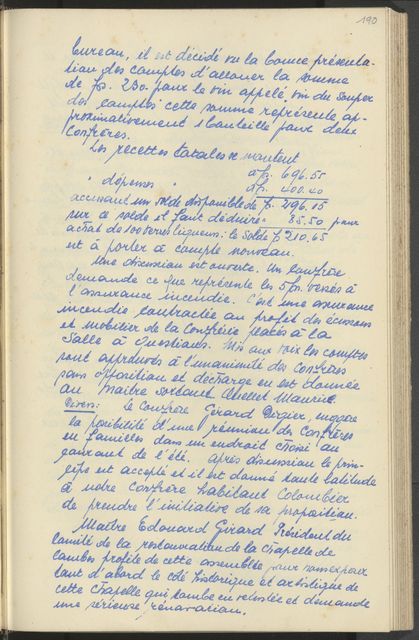 190
bureau, il est décidé vu la bonne présenta-
tion des comptes d'allouer la somme
de fs. 230.- pour le vin appelé "vin du souper
des comptes" cette somme représente ap-
proximativement 1 bouteille pour deux
Confrères.
Les recettes totales se montent
à fs. 696.55
" dépenses " à fs. 400.40
accusant un solde disponible de fs. 296.15
sur ce solde il faut déduire " 85.50 pour
achat de 100 verres liqueurs: le solde fs 210.65
est à porter à compte nouveau.
Une discussion est ouverte. Un confrère
demande ce que représente les 5 frs. versés à
l'assurance incendie. C'est une assurance
incendie contractée au profit des écussons
et mobilier de la Confrérie placés à la
Salle à Questians. Mis aux voix les comptes
sont approuvés à l'unanimité des Confrères
sans opposition et décharge en est donnée
au maître sortant Chollet Maurice.
Divers: le Confrère Girard Digier, suggère
la possibilité d'une réunion des Confrères
en familles dans un endroit choisi au
courant de l'été. Après discussion le prin-
cipe est accepté et il est donné toute latitude
à notre Confrère habitant Colombier
de prendre l'initiative de sa proposition.
Maître Edouard Girard Président du
Comité de la restauration de la chapelle de
Combes profite de cette assemblée pour nous exposer
tout d'abord le côté historique et artistique de
cette chapelle qui tombe en vétusté et demande
une sérieuse rénovation.